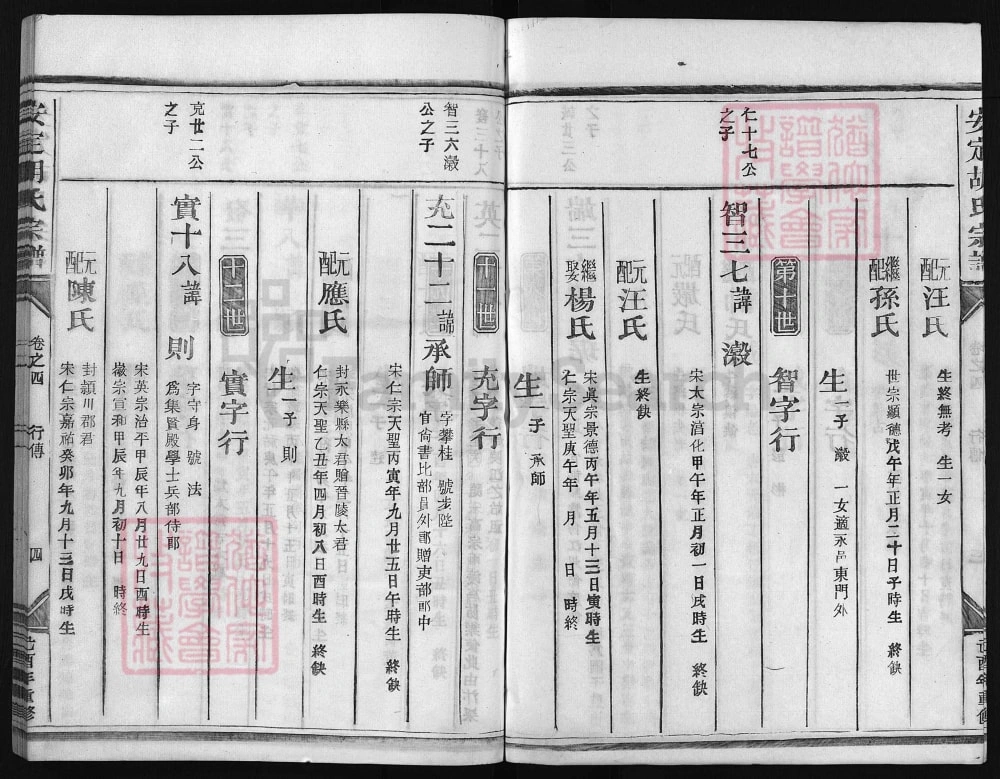 安定胡氏宗譜
元配汪氏
生終無考 生一女
繼配孫氏
世宗顯德戊午年正月二十日子時生 終缺
生一子澂 一女適永邑東門外
第十世
智字行
仁十七公之子
智三七諱澂
宋太宗淳化甲午年正月初一日戌時生 終缺
元配汪氏
生終缺
繼娶楊氏
宋眞宗景德丙午年五月十三日寅時生
仁宗天聖庚午年 月 日 時終
生一子承師
十一世
充字行
智三六澂公之子
充二十二諱承師
字攀桂 號步陛
官尙書比部員外郎贈吏部郎中
宋仁宗天聖丙寅年九月廿五日午時生 終缺
元配應氏
封永樂縣太君贈晉陵太君
仁宗天聖乙丑年四月初八日酉時生 生終缺
生一子則
十二世
實字行
克廿二公之子
實十八諱則
字守身 號法
爲集賢殿學士兵部侍郎
宋英宗治平甲辰年八月廿九日酉時生
徽宗宣和甲辰年九月初十日 時終
元配陳氏
封潁川郡君
宋仁宗嘉祐癸卯年九月十三日戌時生
安定胡氏宗譜
卷之四
行傳
四
己酉年重修